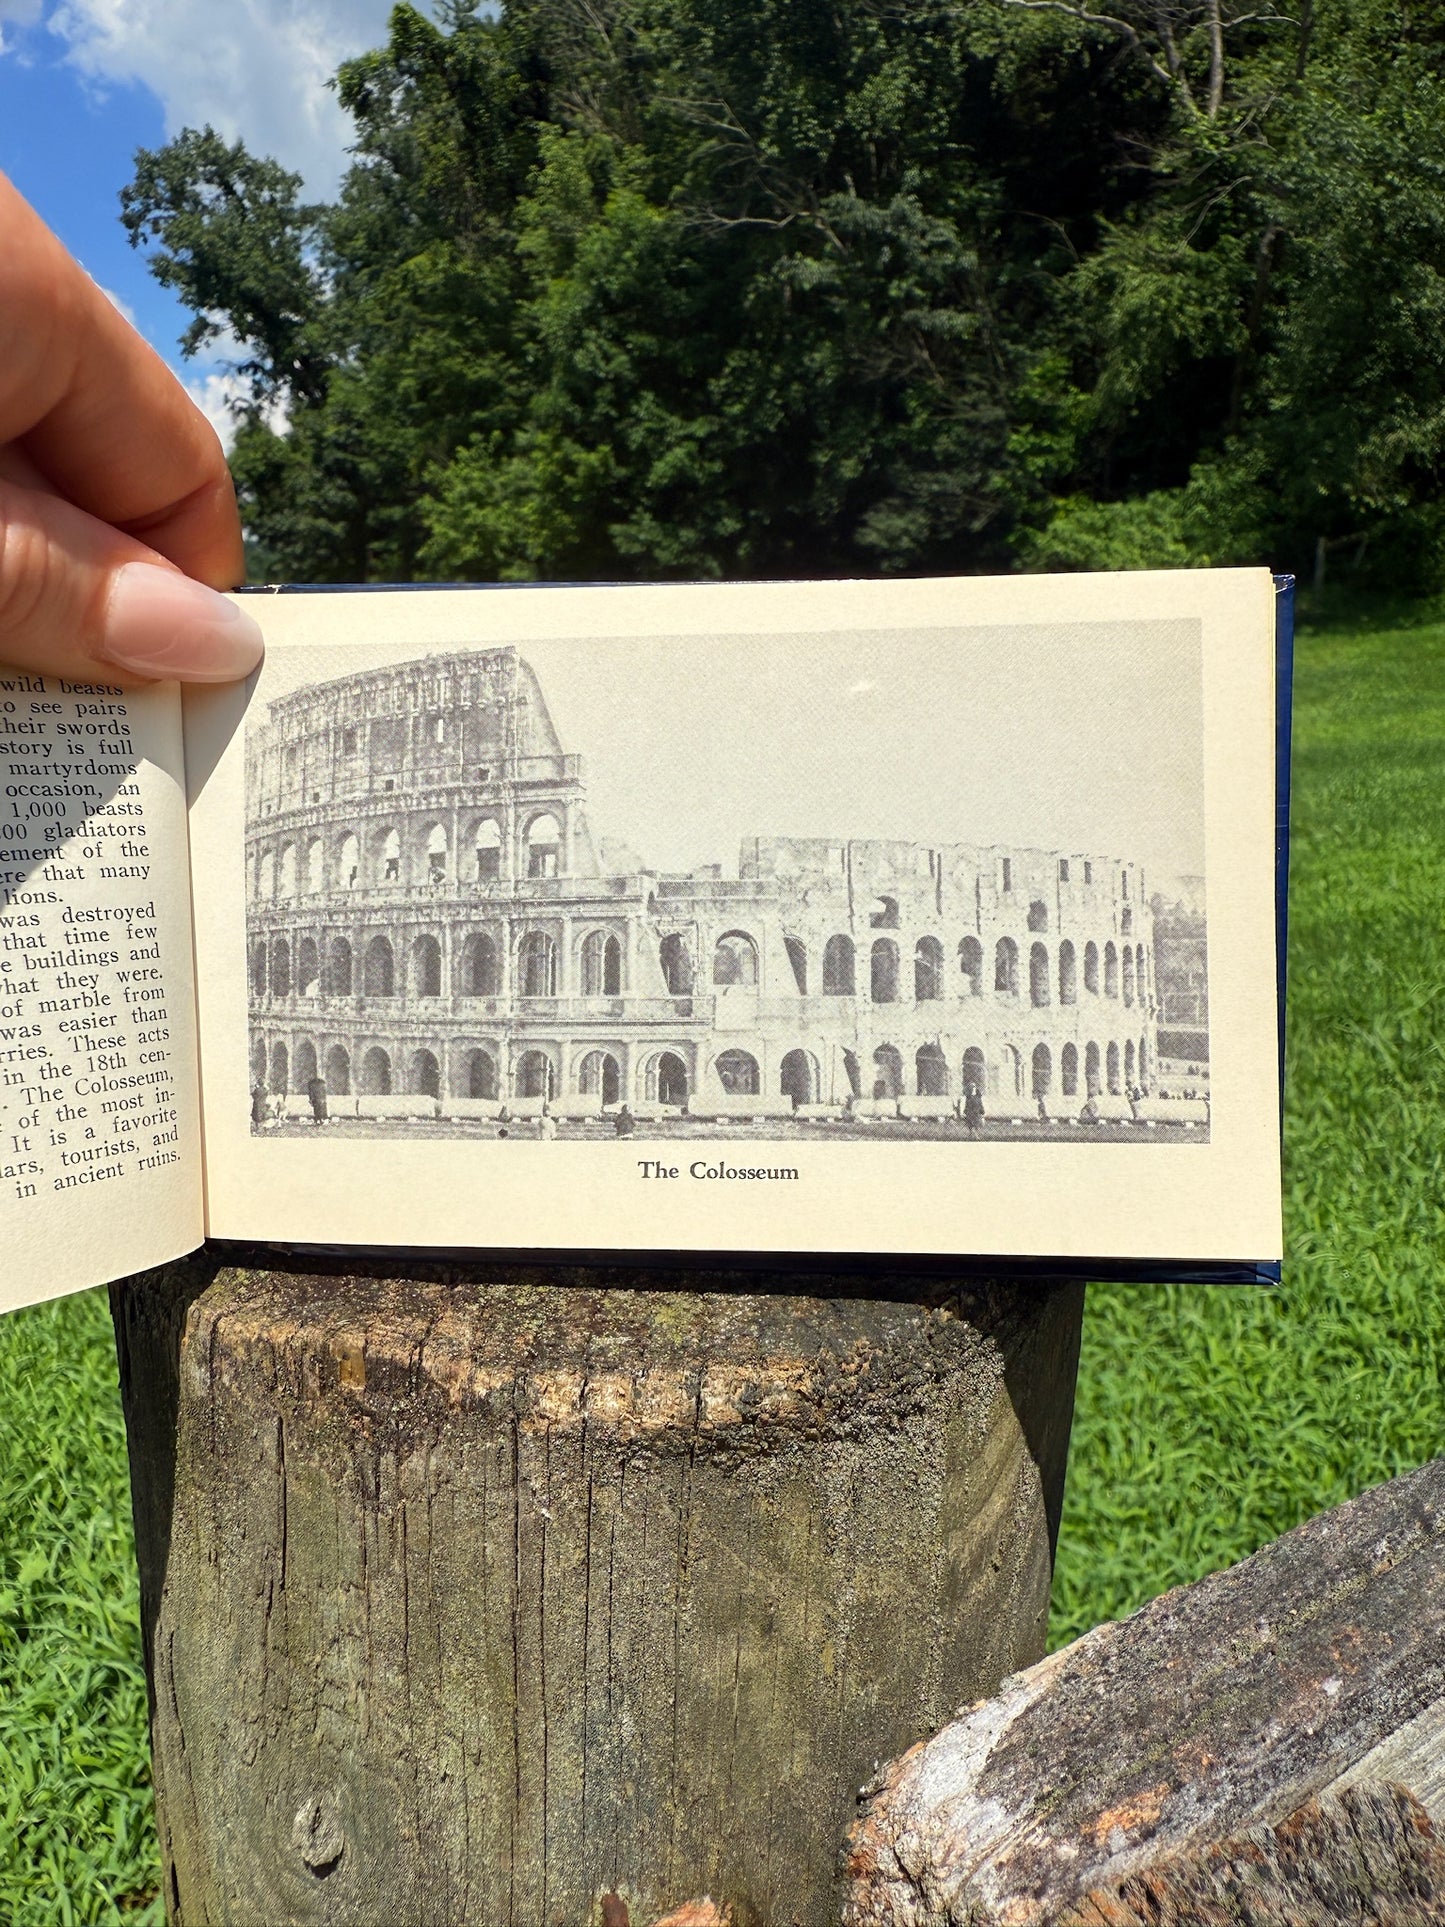 wild beasts
to see pairs
their swords
story is full
martyrdoms
occasion, an
1,000 beasts
00 gladiators
ement of the
ere that many
lions.
was destroyed
that time few
e buildings and
what they were.
of marble from
was easier than
rries. These acts
in the 18th cen-
. The Colosseum,
of the most in-
It is a favorite
lars, tourists, and
in ancient ruins.
The Colosseum